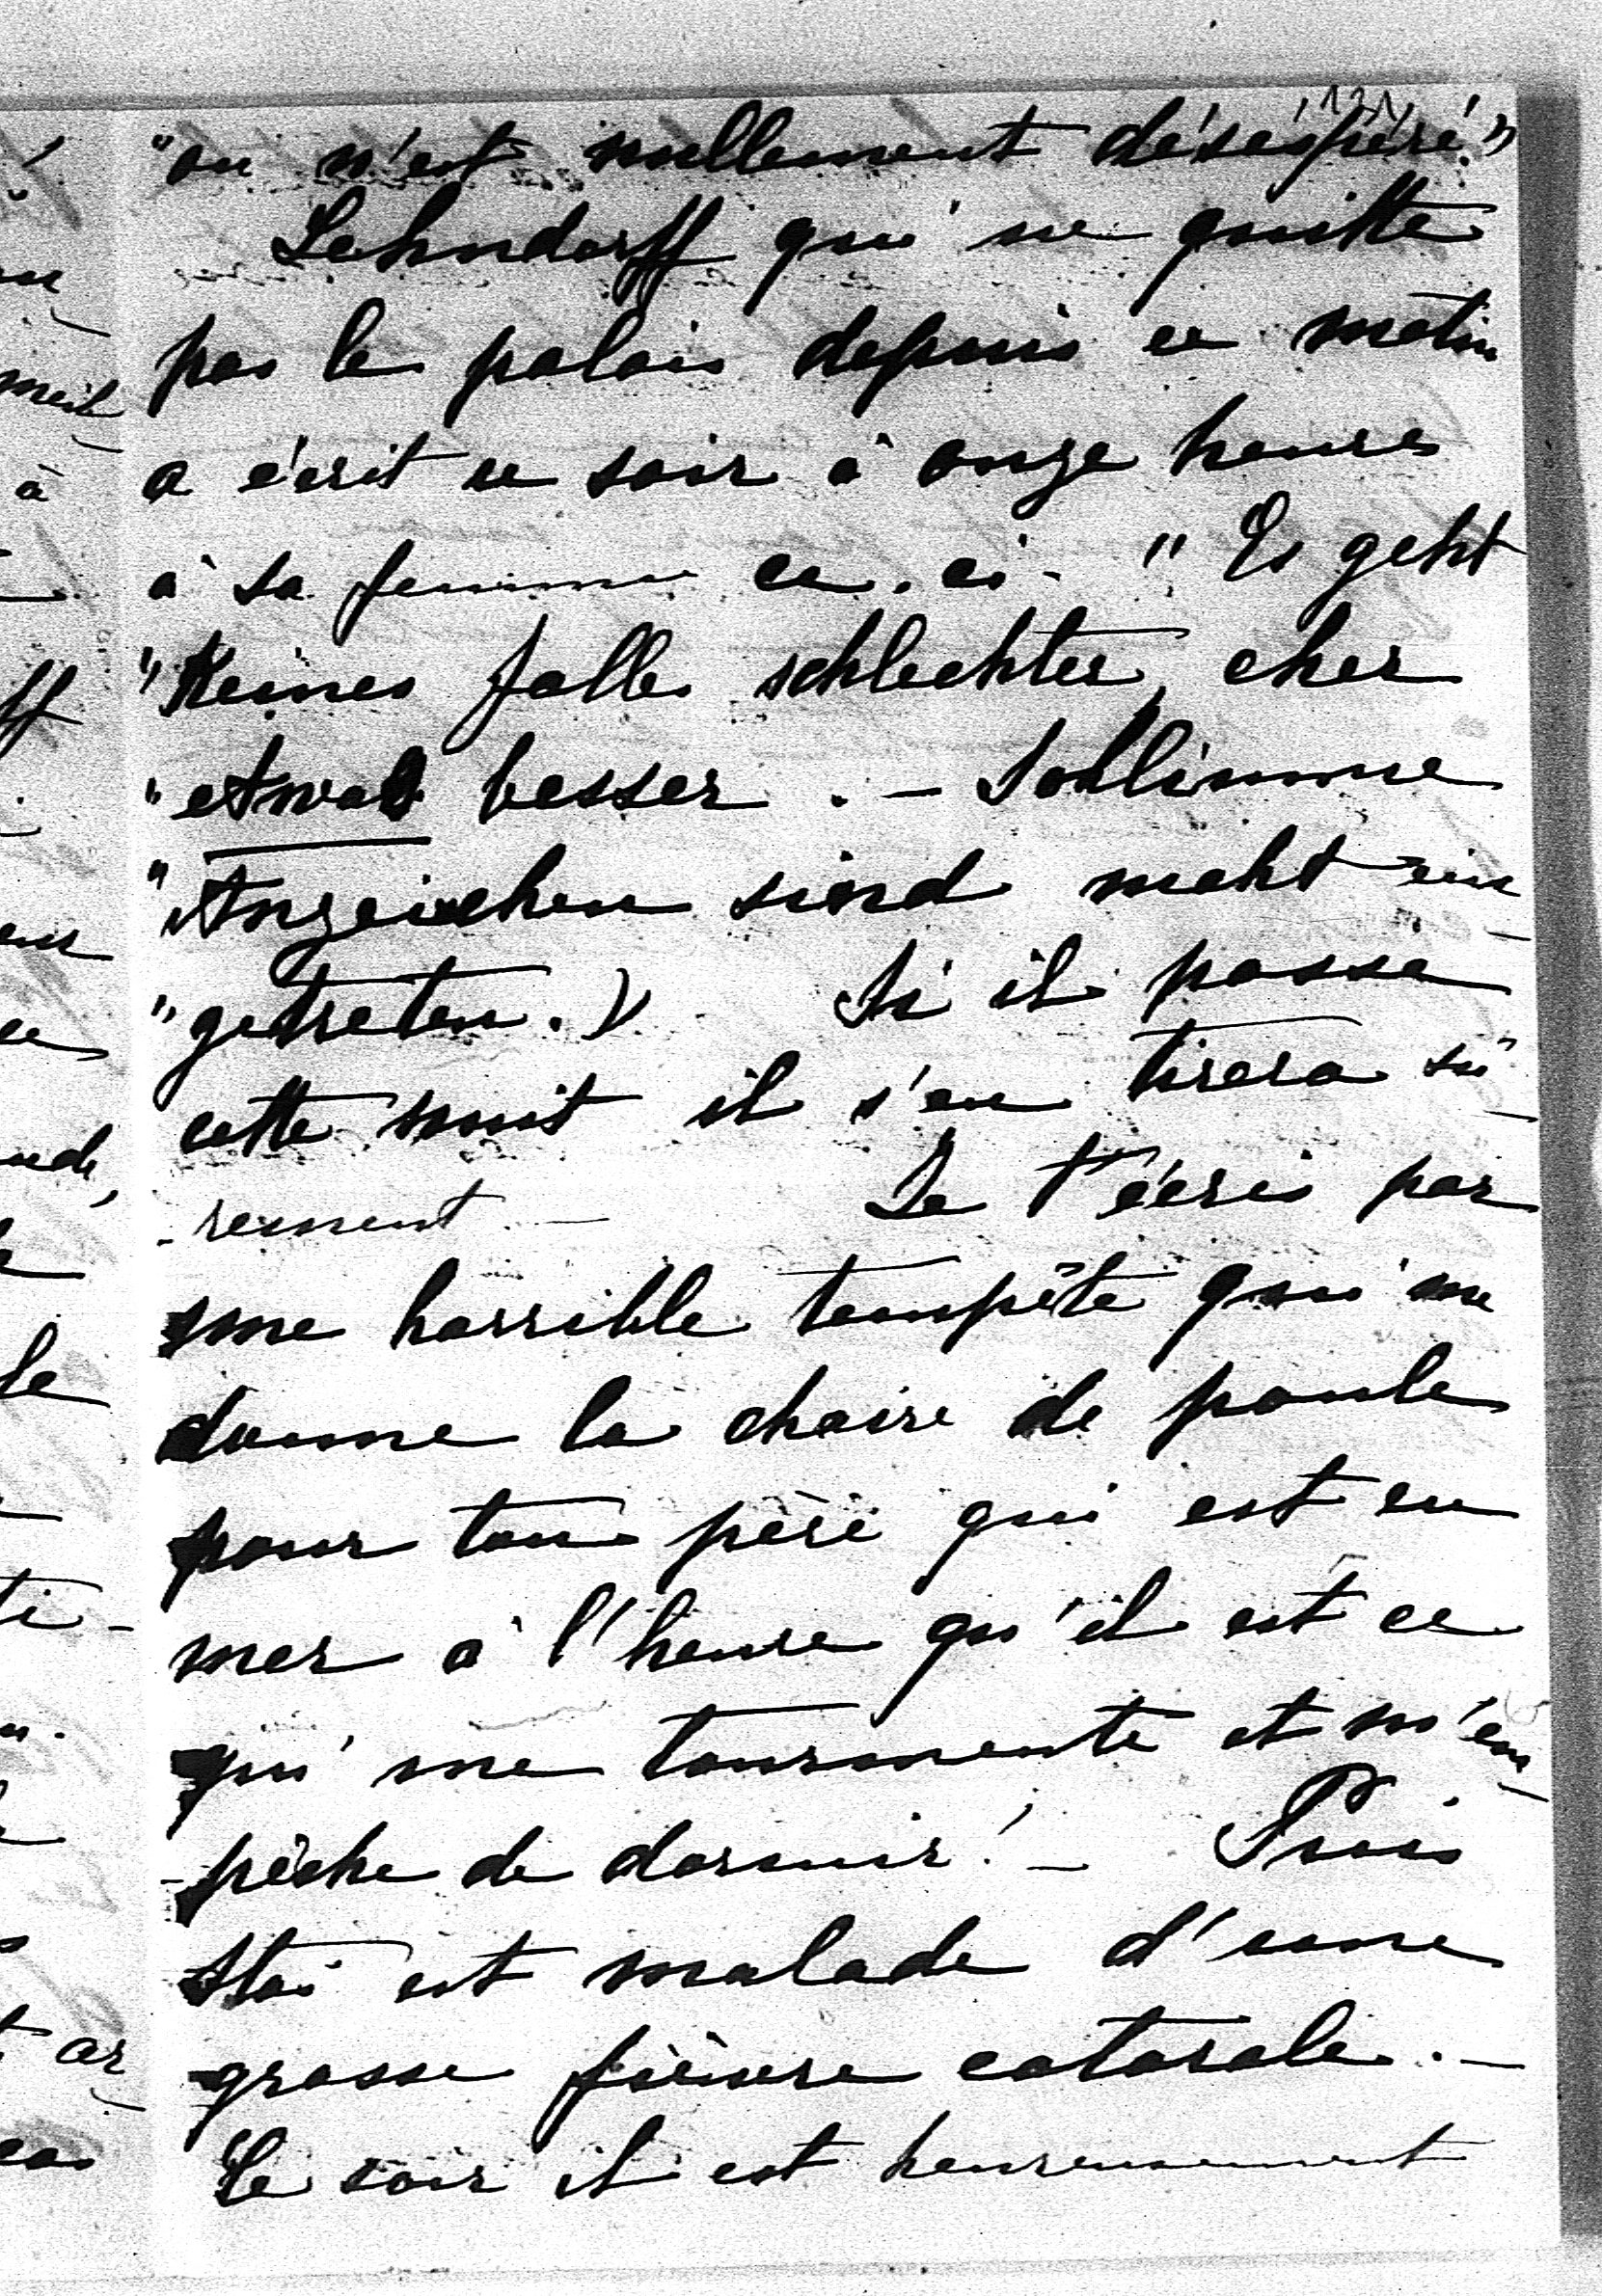 121
"on n'est nullement désespéré."
Lehndorff qui ne quitte
pas le palais depuis ce matin
a écrit ce soir à onze heures
à sa femme ce-ci - "Es geht
"Keines falls schlechter, eher
"etwas besser. - Schlimme
"Anzeichen sind nicht ein-
"getreten.) Si il passe
cette nuit il s'en tirera sû-
-rement. - Je t'écris par
une horrible tempête qui me
donne la chaire de poule
pour ton père qui est en
mer à l'heure qu'il est ce
qui me tourmente et m'em-
-pêche de dormir! - Puis
Stas est malade d'une
grosse fièvre catarale. -
Ce soir il est heureusement